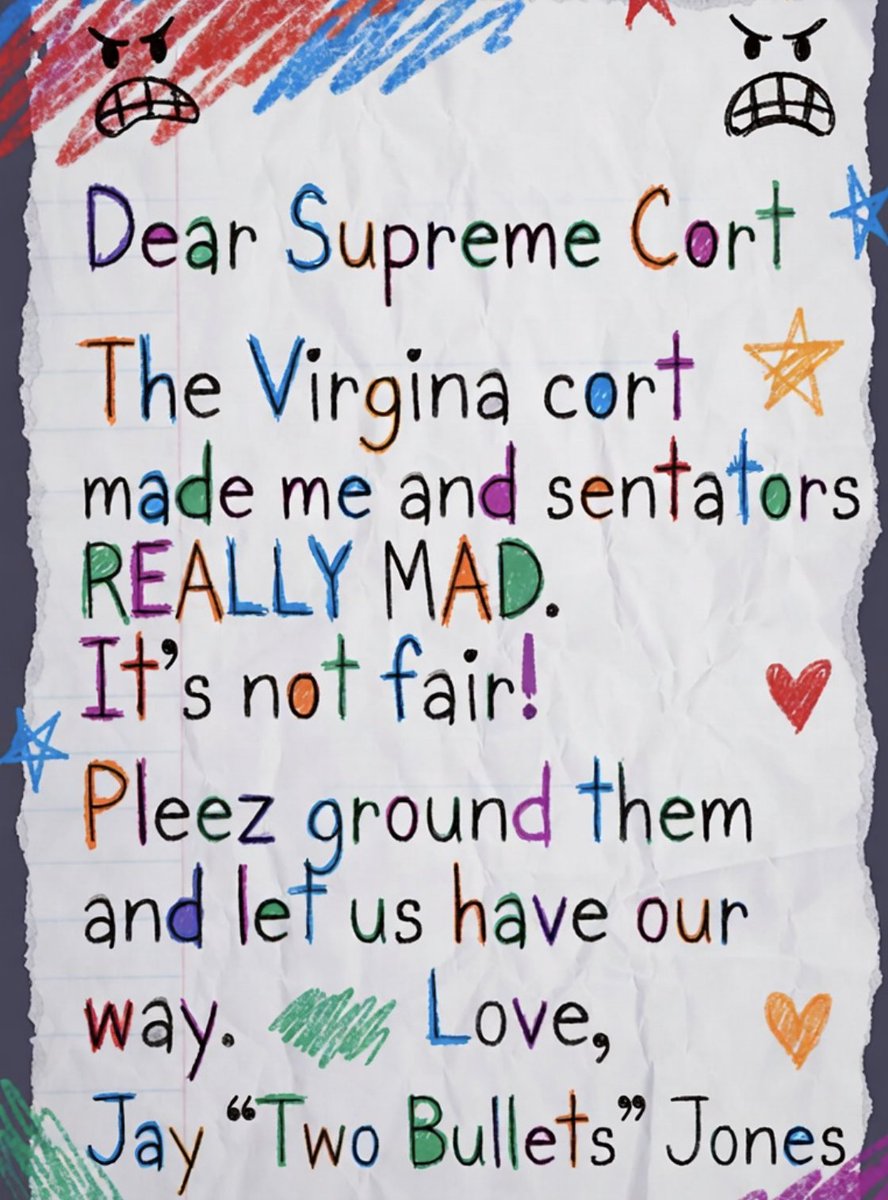 Dear Supreme Cort
The Virgina cort
made me and sentators
REALLY MAD.
It's not fair!
Pleez ground them
and let us have our
way. Love,
Jay “Two Bullets” Jones